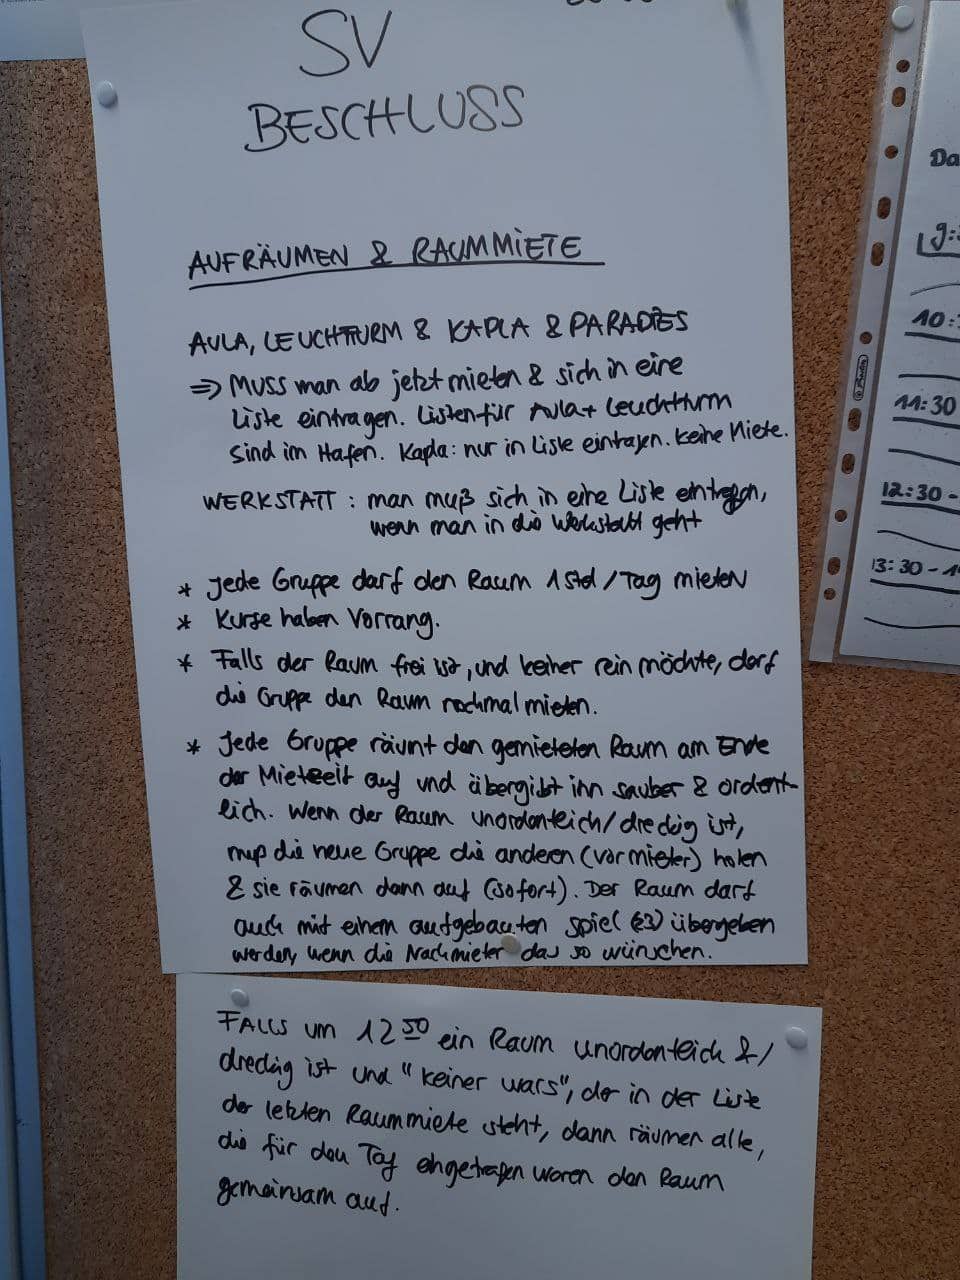 SV
BESCHLUSS
AUFRÄUMEN & RAUMMIETE
AULA, LEUCHTTURM & KAPLA & PARADIES
⇒ Muss man ab jetzt mieten & sich in eine
Liste eintragen. Listen für Aula + Leuchtturm
sind im Hafen. Kapla: nur in Liste eintragen. Keine Miete.
WERKSTATT : man muß sich in eine Liste eintragen,
wenn man in die Werkstatt geht
* Jede Gruppe darf den Raum 1 Std / Tag mieten
* Kurse haben Vorrang.
* Falls der Raum frei ist, und keiner rein möchte, darf
die Gruppe den Raum nochmal mieten.
* Jede Gruppe räumt den gemieteten Raum am Ende
der Mietzeit auf und übergibt ihn sauber & ordent-
lich. Wenn der Raum unordentlich/dreckig ist,
muß die neue Gruppe die anderen (Vormieter) holen
& sie räumen dann auf (sofort). Der Raum darf
auch mit einem aufgebauten Spiel übergeben
werden, wenn die Nachmieter das so wünschen.
FALLS um 12 50 ein Raum unordentlich &/
dreckig ist und "keiner wars", der in der Liste
der letzten Raummiete steht, dann räumen alle,
die für den Tag eingetragen waren den Raum
gemeinsam auf.
Da
9:
10:
11:30
12:30 -
13:30 - 1